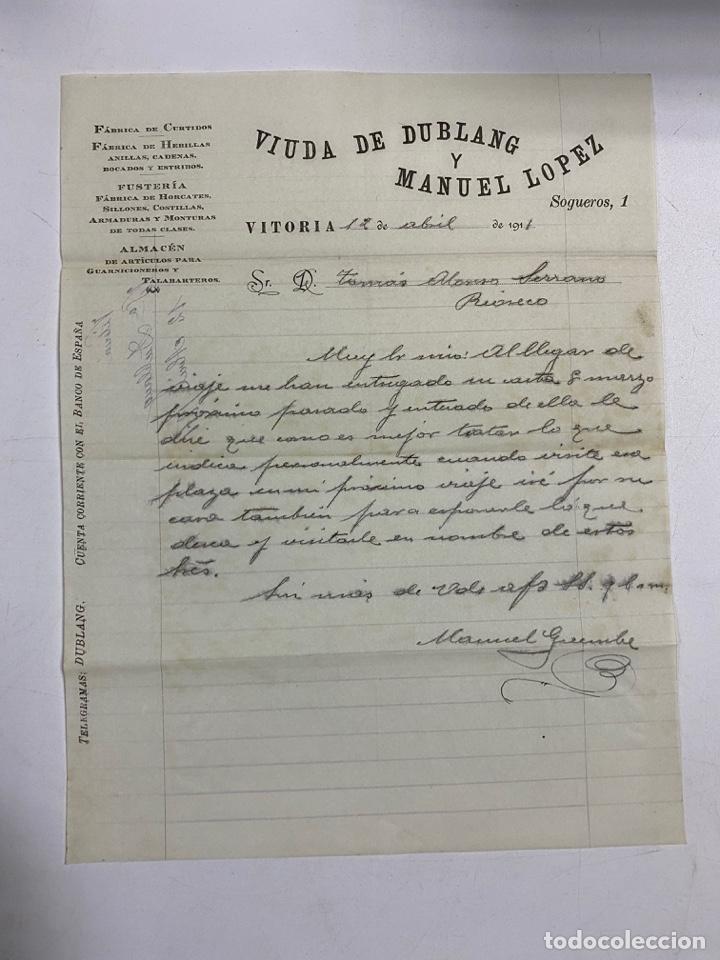 FÁBRICA DE CURTIDOS
FÁBRICA DE HEBILLAS
ANILLAS, CADENAS,
BOCADOS Y ESTRIBOS.
FUSTERÍA
FÁBRICA DE HORCATES,
SILLONES, COSTILLAS,
ARMADURAS Y MONTURAS
DE TODAS CLASES.
ALMACÉN
DE ARTÍCULOS PARA
GUARNICIONEROS Y
TALABARTEROS.
VIUDA DE DUBLANG
Y
MANUEL LOPEZ
Sogueros, 1
VITORIA 12 de abril de 1911
Sr. D. Tomás Alonso Serrano
Rioseco
Muy Sr mio: Al llegar de
viaje me han entregado su carta 8 marzo
próximo pasado y enterado de ella le
diré que como es mejor tratar lo que
indica personalmente cuando visite esa
plaza en mi próximo viaje iré por su
casa también para exponerle lo que
desea y visitarle en nombre de estos
Sres.
Sin más de Vds afs SS. q b m
Manuel
TELEGRAMAS: DUBLANG. CUENTA CORRIENTE CON EL BANCO DE ESPAÑA
todocoleccion